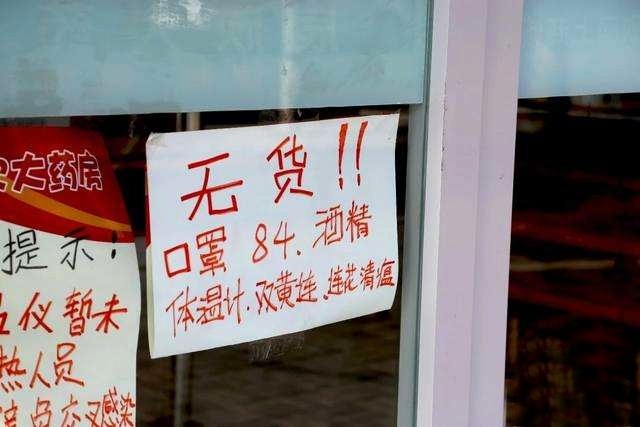 大药房
提示！
仪暂未
热人员
交叉感染
无货!!
口罩 84、酒精
体温计、双黄连、连花清瘟